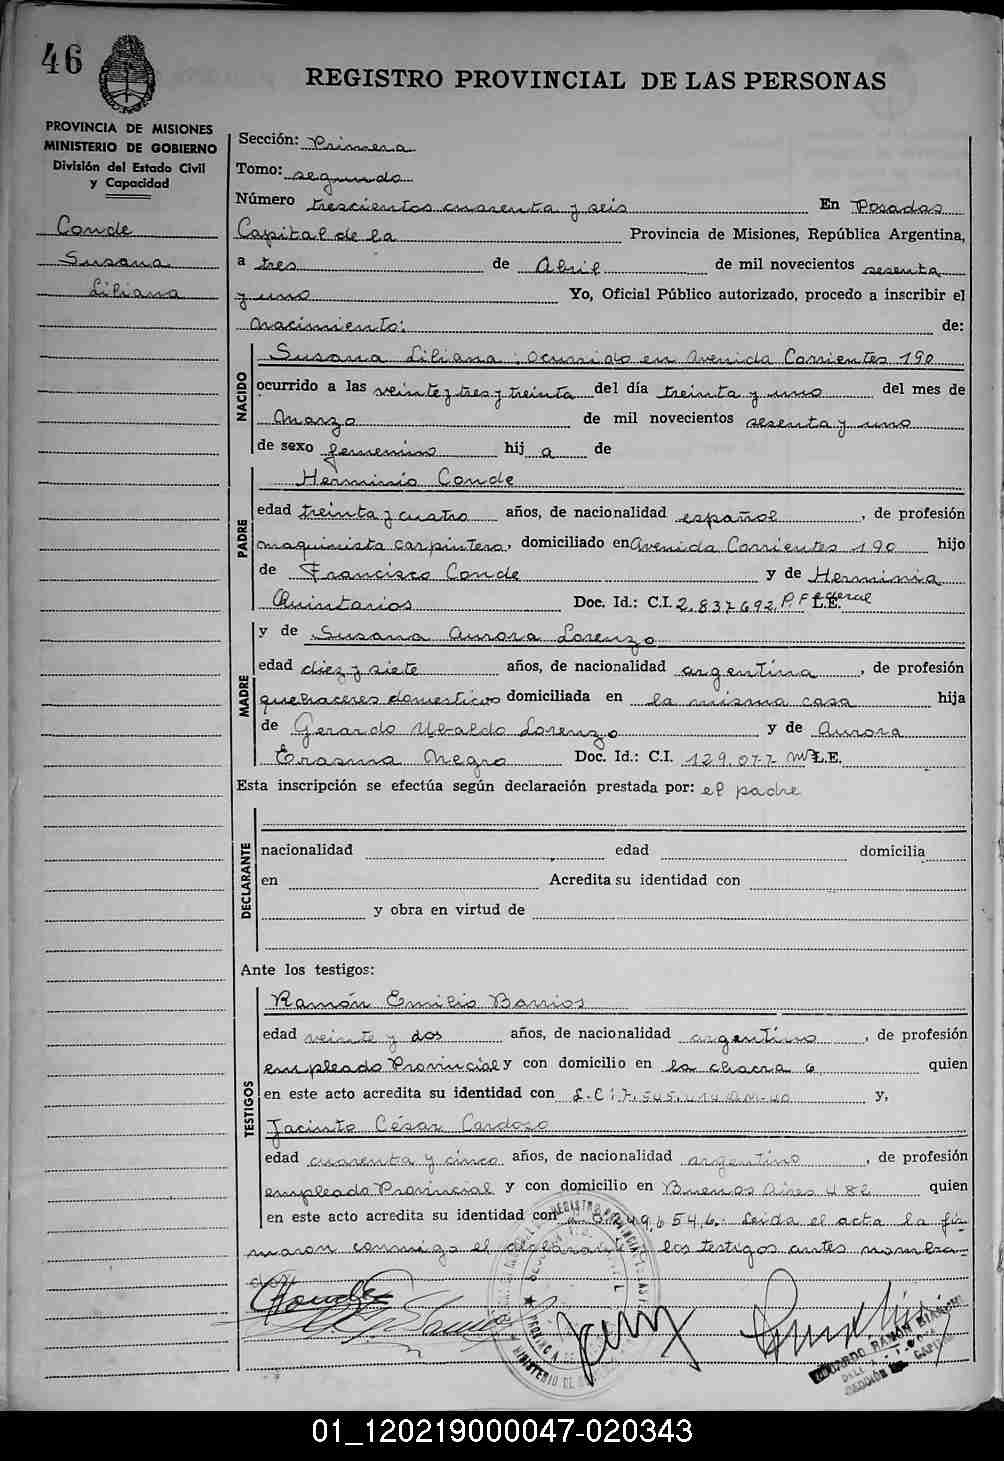 46
REGISTRO PROVINCIAL DE LAS PERSONAS
PROVINCIA DE MISIONES
MINISTERIO DE GOBIERNO
División del Estado Civil
y Capacidad
Conde
Susana
Liliana
Sección: Primera
Tomo: segundo
Número trescientos cuarenta y seis En Posadas
Capital de la Provincia de Misiones, República Argentina,
a tres de Abril de mil novecientos sesenta
y uno Yo, Oficial Público autorizado, procedo a inscribir el
Nacimiento: de:
NACIDO
Susana Liliana: ocurrido en Avenida Corrientes 190
ocurrido a las veinte y tres y treinta del día treinta y uno del mes de
Marzo de mil novecientos sesenta y uno
de sexo femenino hij a de
PADRE
Herminio Conde
edad treinta y cuatro años, de nacionalidad español, de profesión
maquinista carpintero, domiciliado en Avenida Corrientes 190 hijo
de Francisco Conde y de Herminia
Quintarios Doc. Id.: C.I. 2.837.692. P. Federal L.E.
MADRE
y de Susana Aurora Lorenzo
edad diez y siete años, de nacionalidad argentina, de profesión
quehaceres domesticos domiciliada en la misma casa hija
de Gerardo Ubaldo Lorenzo y de Aurora
Erasma Negro Doc. Id.: C.I. 129.077 L.E.
Esta inscripción se efectúa según declaración prestada por: el padre
DECLARANTE
nacionalidad edad domicilia
en Acredita su identidad con
y obra en virtud de
Ante los testigos:
TESTIGOS
Ramón Emilio Barrios
edad veinte y dos años, de nacionalidad argentino, de profesión
empleado Provincial y con domicilio en la chacra 6 quien
en este acto acredita su identidad con y,
Jacinto César Cardozo
edad cuarenta y cinco años, de nacionalidad argentino, de profesión
empleado Provincial y con domicilio en Buenos Aires 482 quien
en este acto acredita su identidad con Leida el acta la fir
maron conmigo el declarante y los testigos antes nombra-
dos
01_120219000047-020343